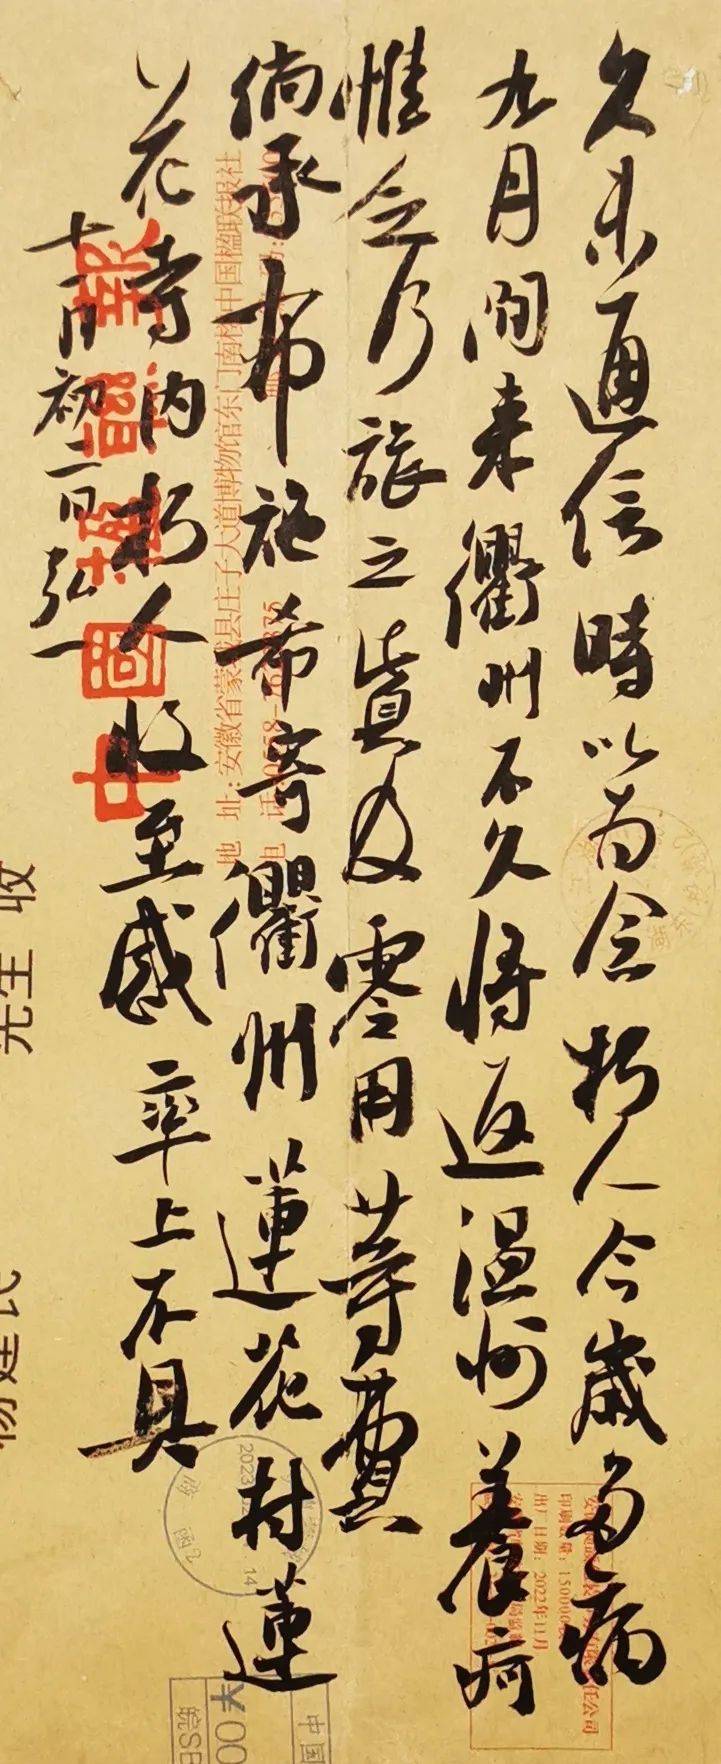 久未通信時以为念朽人今歲多病
九月间来衢州不久将返温州養疴
惟乏行旅之資及零用等費
倘承布施希寄衢州蓮花村蓮
花寺内朽人收至感率上不具
十一月初二日弘一
中國楹聯報
地 址:安徽省蒙城县庄子大道博物馆东门南楼中国楹联报社
电 话:0558-
先生 收
杨建民
出厂日期:2022年11月
2023
14
中国